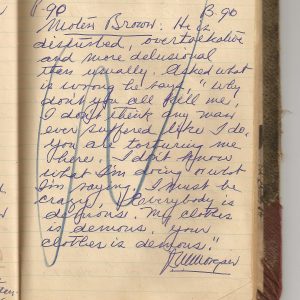 P-90 B-90
Moten Brown: He is
disgusted, overtalkative
and more delusional
than usually. Asked what
is wrong he says, "why
don't you all kill me,
I don't think any man
ever suffered like I do,
you are torturing me
here. I don't know
what I'm doing or what
I'm saying. I must be
crazy, Everybody is
demons. My clothes
is demons. your
clothes is demons."